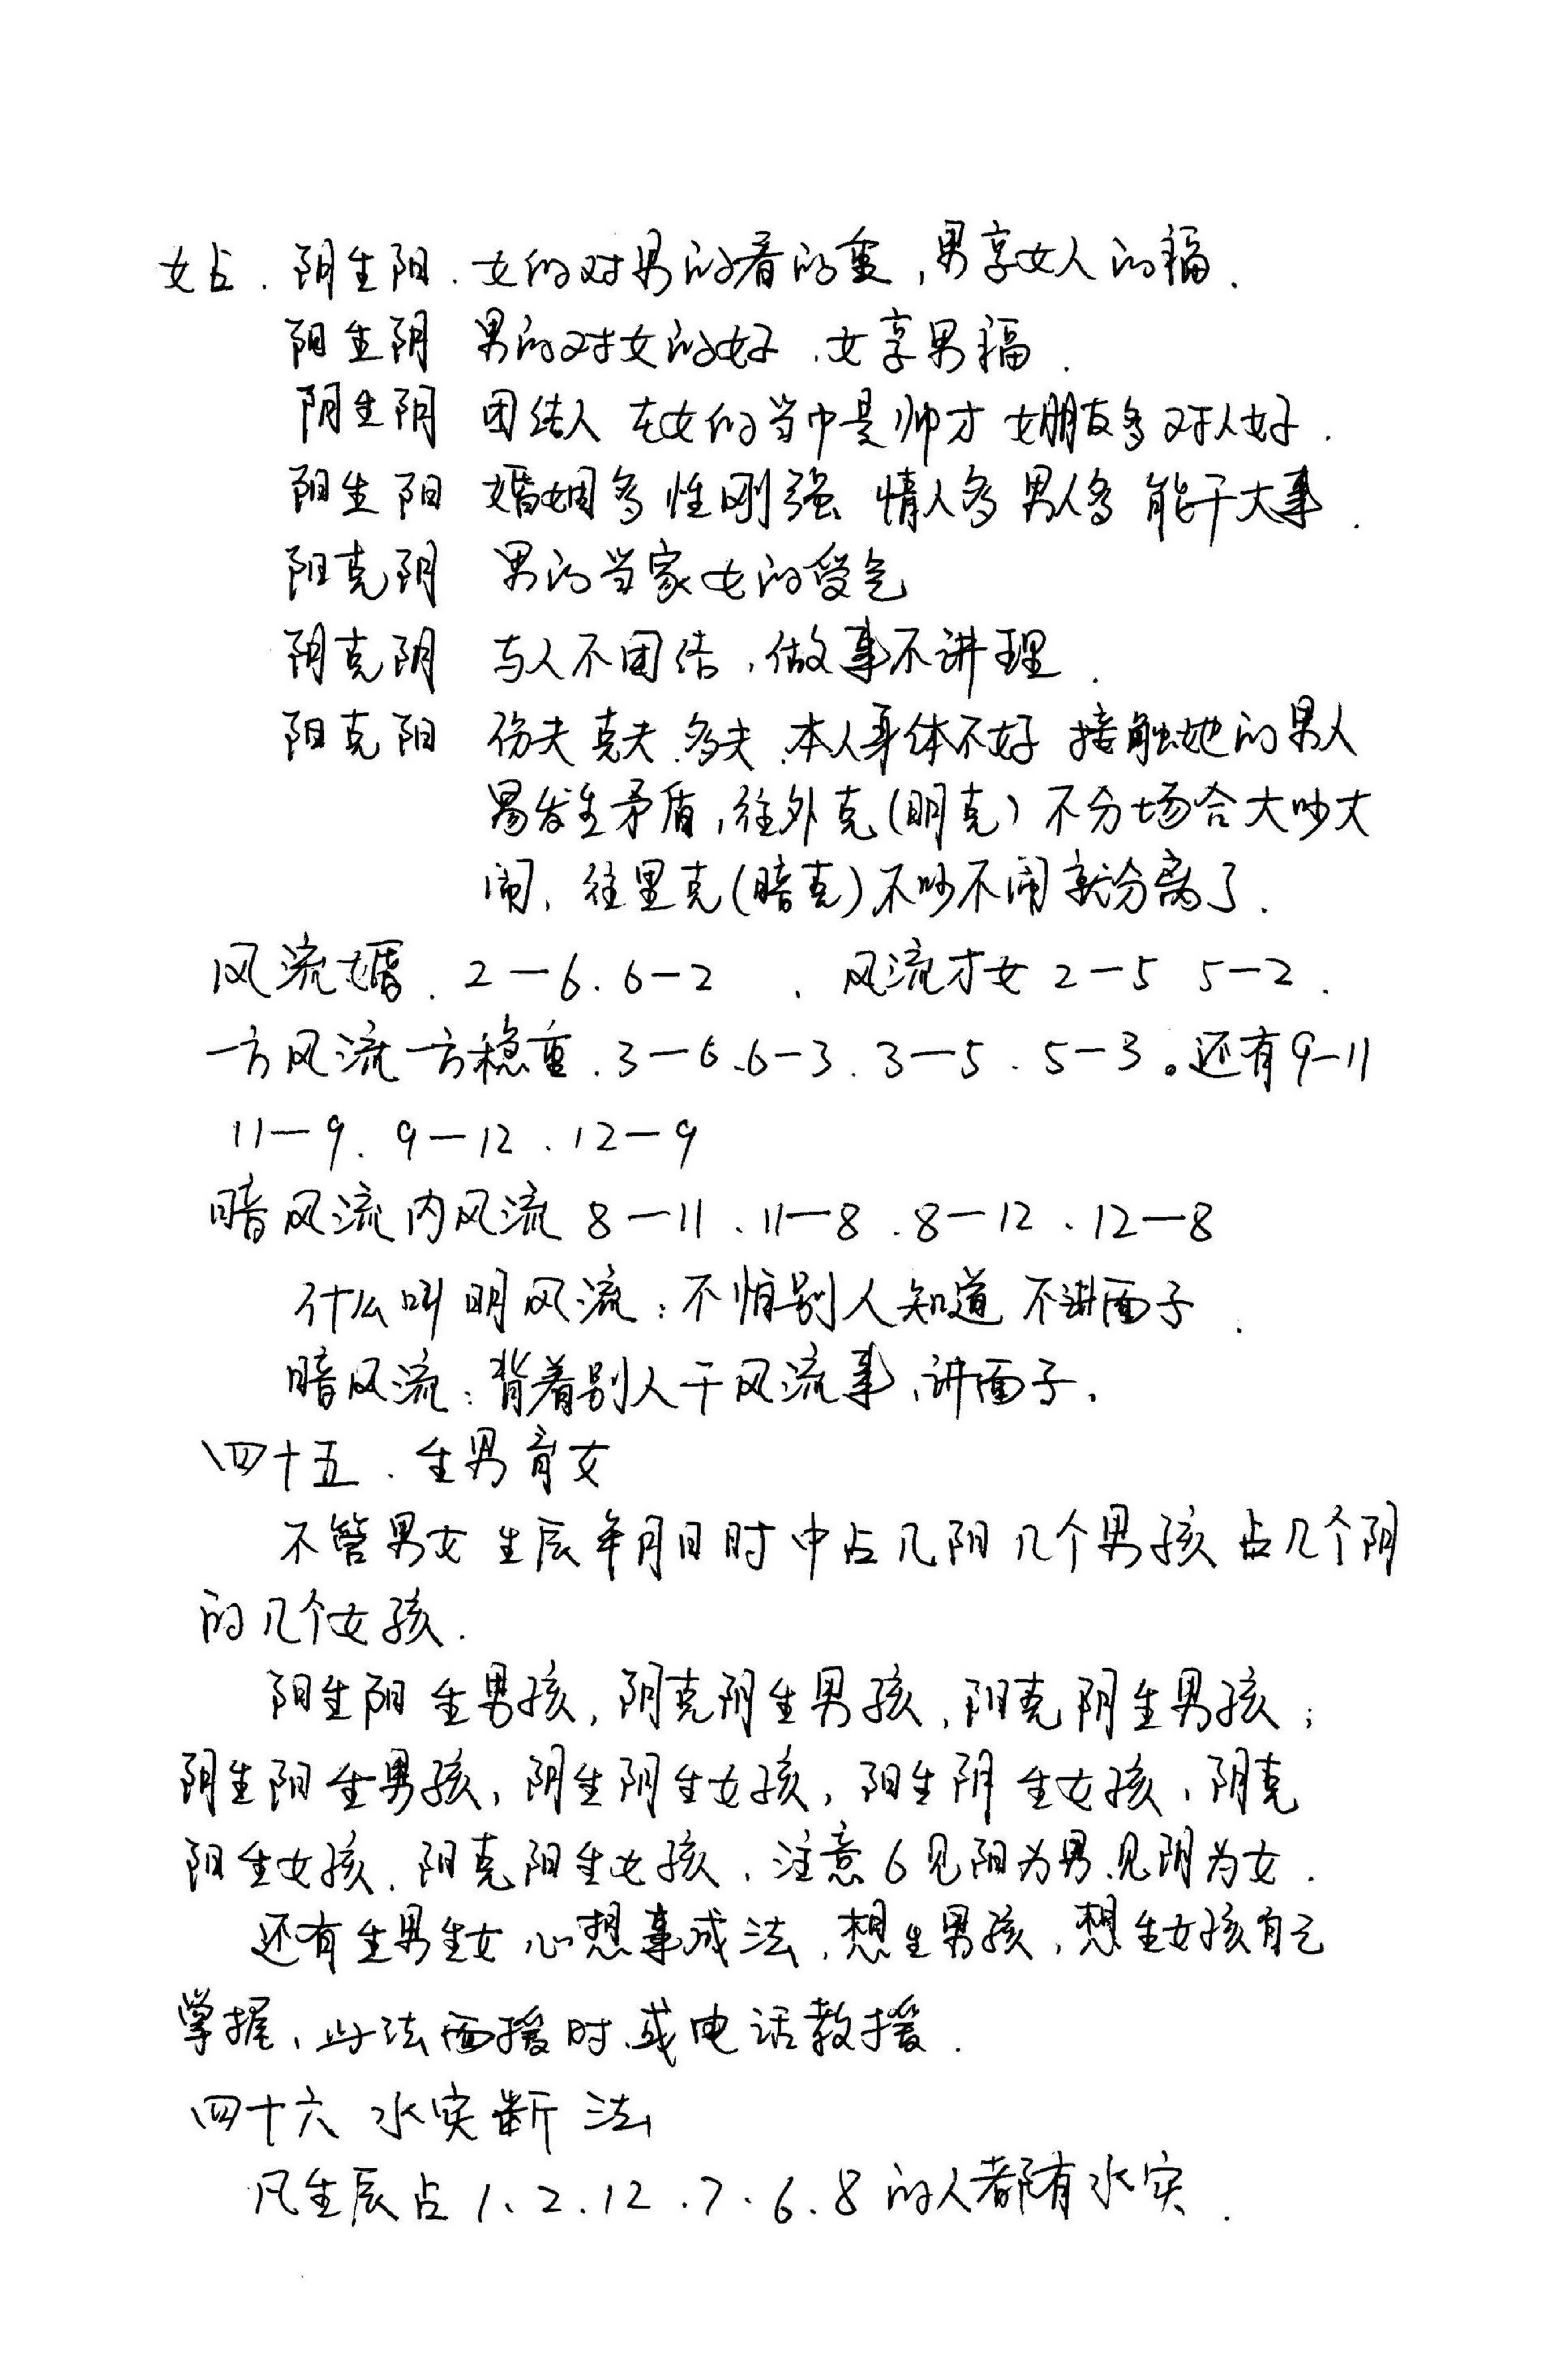 女占．阴生阳．女的对男的看的重，男享女人的福．
阳生阴 男的对女的好．女享男福．
阴生阴 团结人 在女的当中是帅才 女朋友多 对人好．
阳生阳 婚姻多 性刚强 情人多 男人多 能干大事．
阳克阴 男的当家女的受气
阴克阴 与人不团结，做事不讲理．
阳克阳 伤夫克夫．多夫．本人身体不好 接触她的男人
易发生矛盾，往外克（明克）不分场合大吵大
闹，往里克（暗克）不吵不闹就分离了．
风流婚．2—6．6—2 ．风流才女 2—5 5—2．
一方风流一方稳重．3—6．6—3．3—5．5—3。还有9—11
11—9．9—12．12—9
暗风流内风流 8—11．11—8．8—12．12—8
什么叫明风流：不怕别人知道 不讲面子．
暗风流：背着别人干风流事，讲面子．
四十五．生男育女
不管男女 生辰年月日时中占几阳几个男孩 占几个阴
的几个女孩．
阳生阳生男孩，阴克阴生男孩，阳克阴生男孩；
阴生阳生男孩，阴生阴生女孩，阳生阴生女孩，阴克
阳生女孩，阳克阳生女孩，注意6见阳为男．见阴为女．
还有生男生女心想事成法，想生男孩，想生女孩自己
掌握，此法面授时．或电话教授．
四十六 水灾断法
凡生辰占1、2．12．7、6．8的人都有水灾．